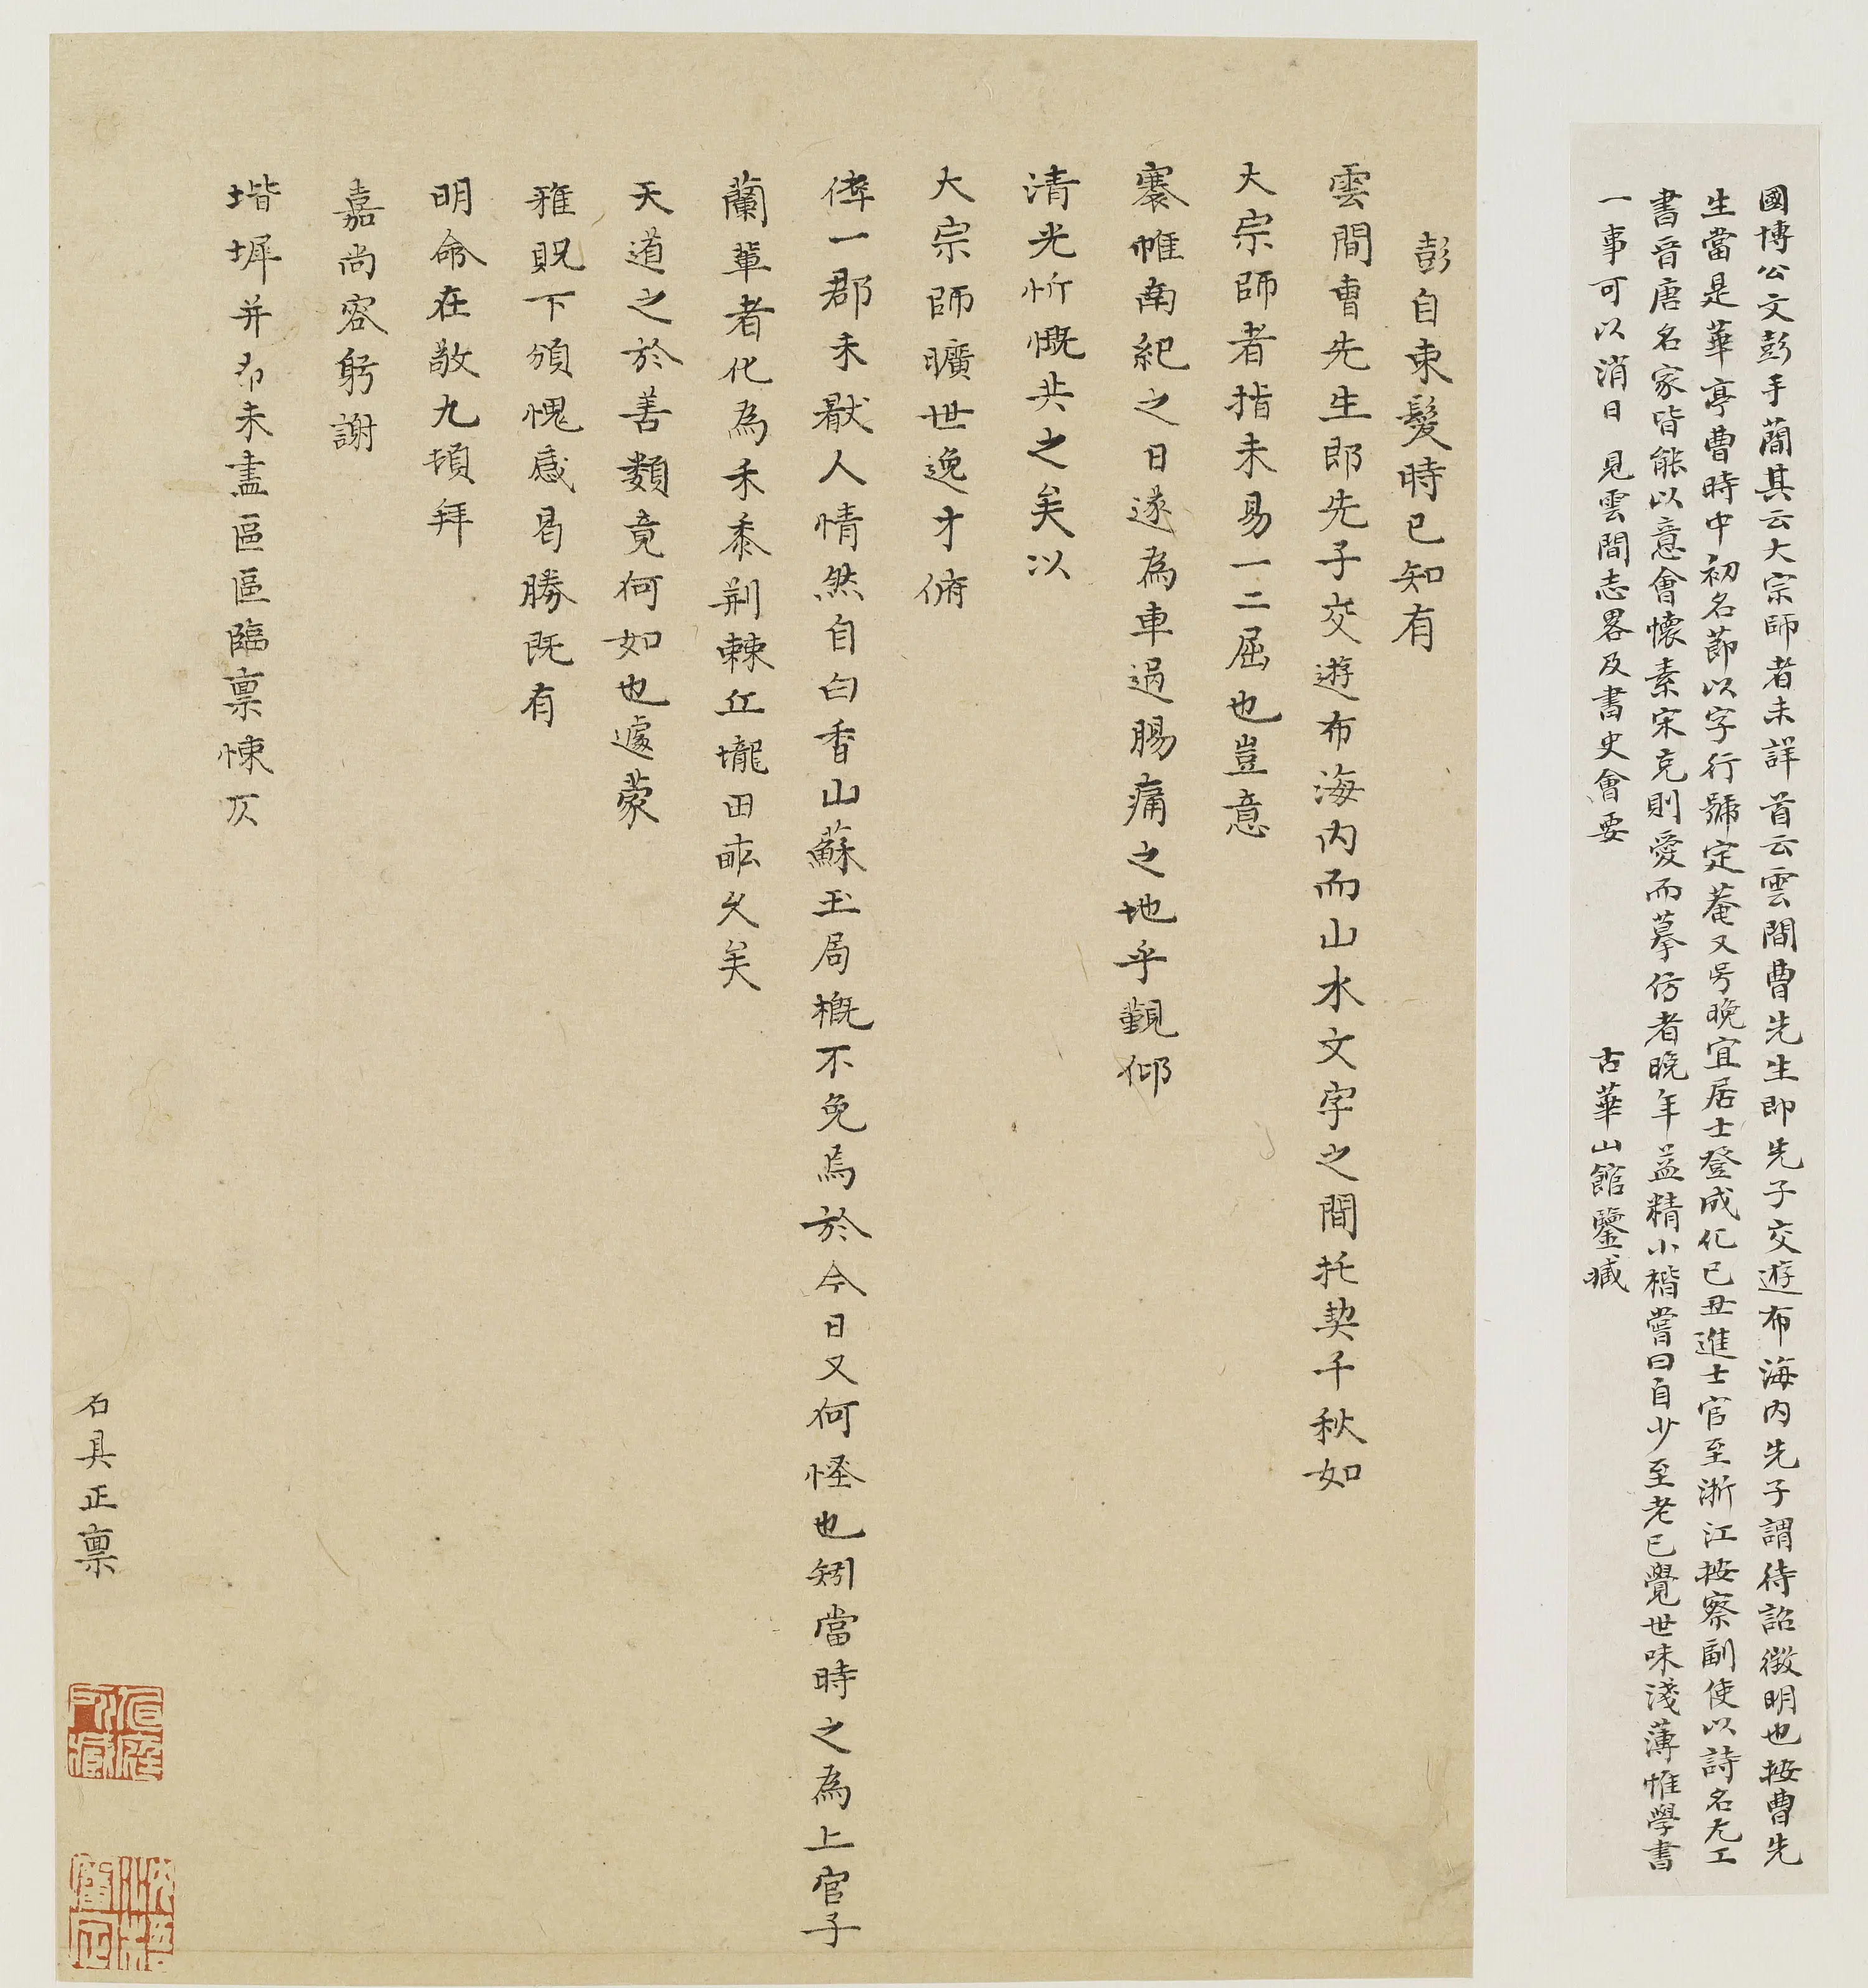 國博公文彭手蕳其云大宗師者未詳首云雲間曹先生即先子交遊布海內先子謂待詔徵明也按曹先
生當是華亭曹時中初名節以字行號定菴又号晚宜居士登成化己丑進士官至浙江按察副使以詩名尤工
書晉唐名家皆能以意會懷素宋克則愛而摹仿者晚年益精小楷嘗曰自少至老已覺世味淺薄惟學書
一事可以消日 見雲間志畧及書史會要 古華山館鑒臧
彭自束髮時已知有
雲間曹先生郎先子交遊布海內而山水文字之間托契千秋如
大宗師者指未易一二屈也豈意
褰帷南紀之日遂為車過腸痛之地乎覲仰
清光忻慨共之矣以
大宗師曠世逸才俯
倅一郡未厭人情然自白香山蘇玉局概不免焉於今日又何怪也矧當時之為上官子
蘭輩者化為禾黍荆棘丘壠田畝久矣
天道之於善類竟何如也遽蒙
雅貺下頒愧感曷勝既有
明命在敬九頓拜
嘉尚容躬謝
堦墀并布未盡區區臨稟悚仄
名具正稟